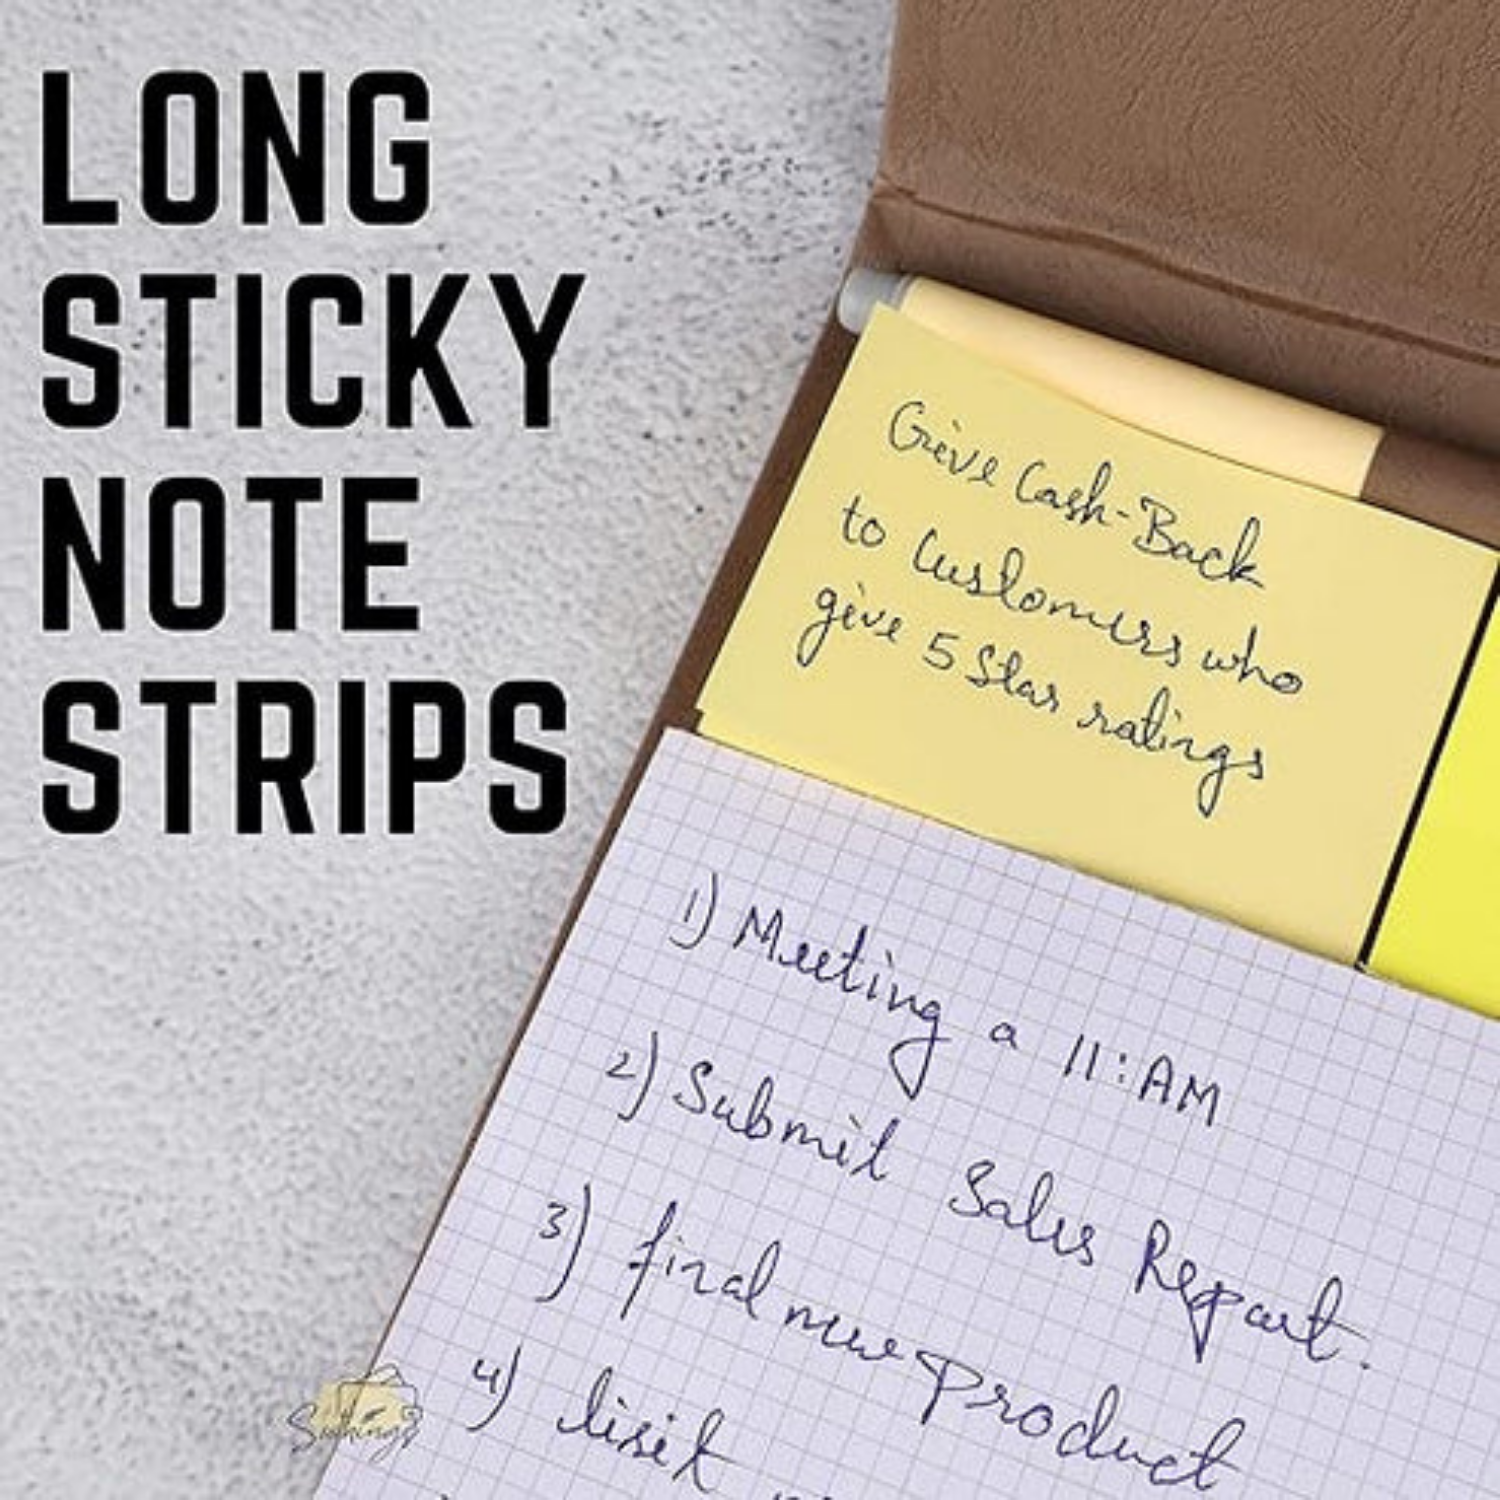 LONG
STICKY
NOTE
STRIPS
Give Cash-Back
to Customers who
give 5 Star ratings
1) Meeting a 11:AM
2) Submit Sales Report.
3) final new product
4) lisit